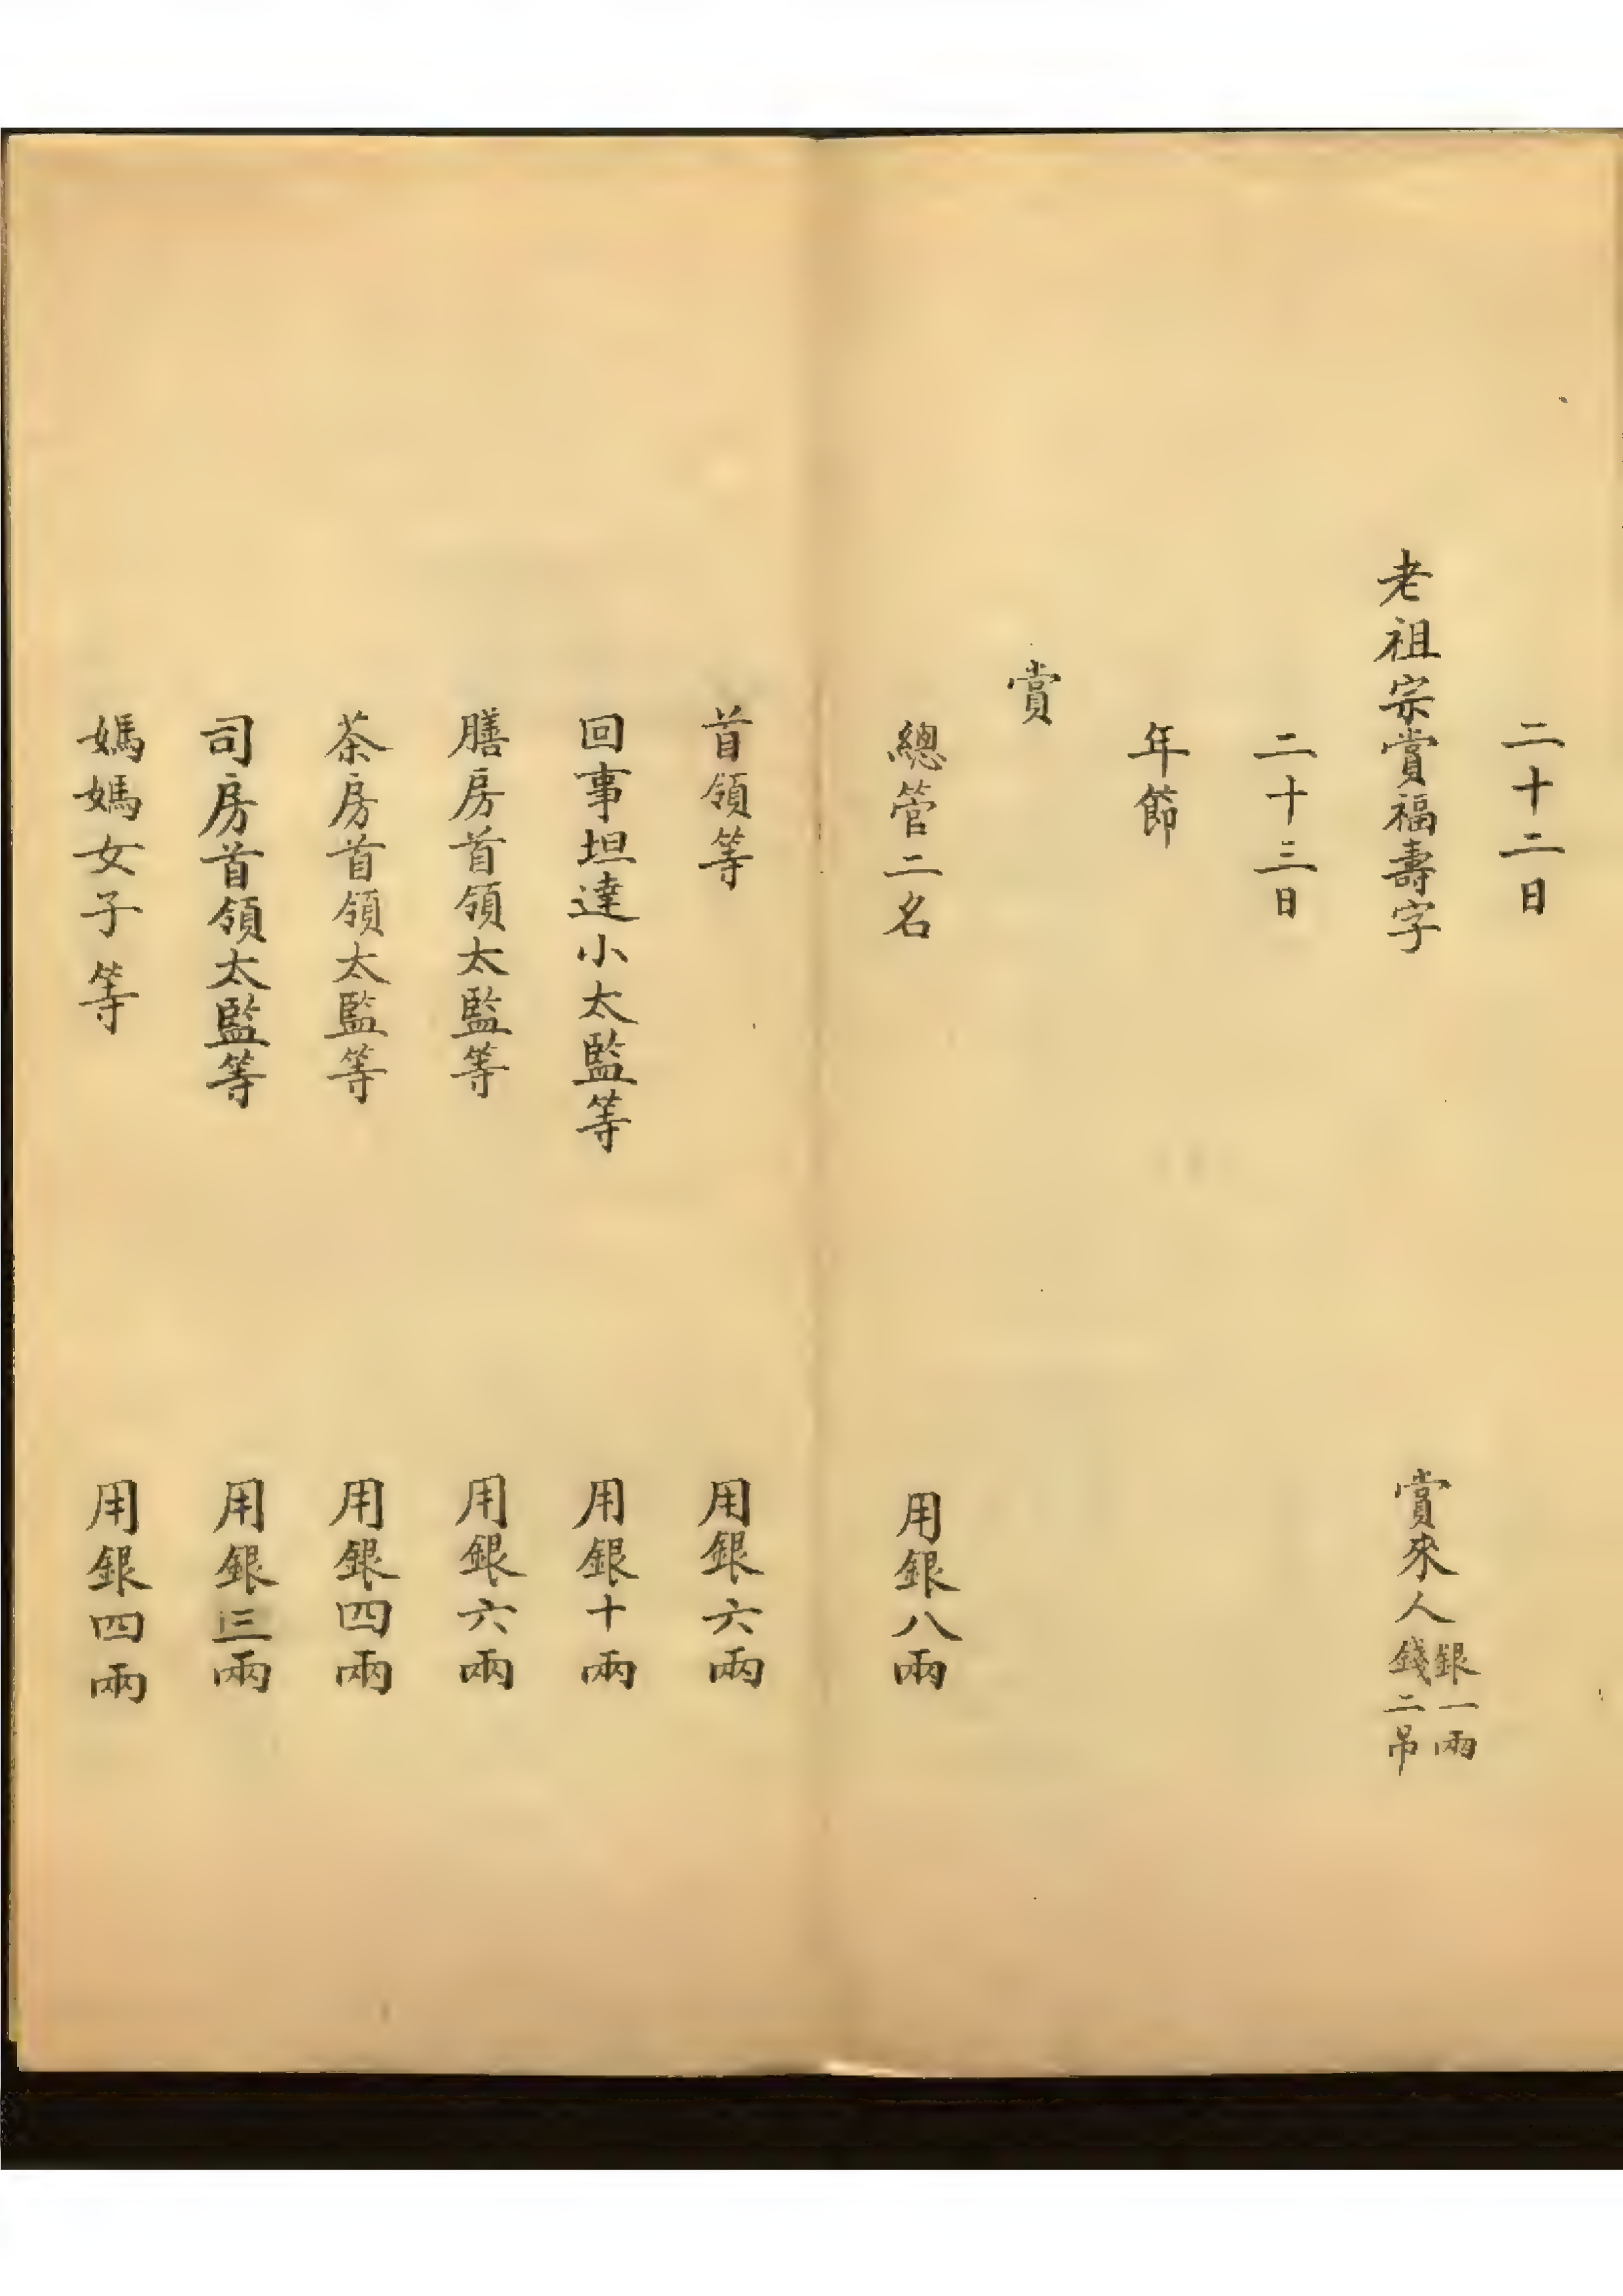 二十二日
老祖宗賞福壽字 賞來人銀一兩錢二吊
二十三日
年節
賞
總管二名 用銀八兩
首領等 用銀六兩
回事坦達小太監等 用銀十兩
膳房首領太監等 用銀六兩
茶房首領太監等 用銀四兩
司房首領太監等 用銀三兩
媽媽女子等 用銀四兩